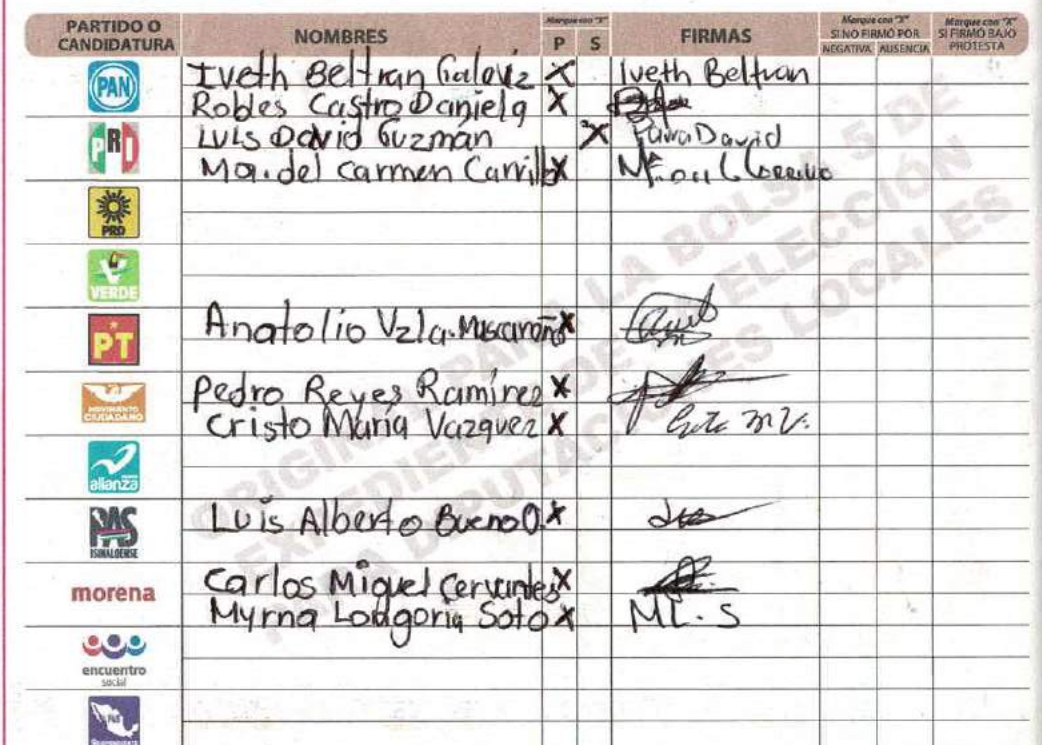 PARTIDO O CANDIDATURA NOMBRES Marque con "X" P S FIRMAS Marque con "X" SI NO FIRMÓ POR NEGATIVA AUSENCIA Marque con "X" SI FIRMÓ BAJO PROTESTA
PAN Iveth Beltran Galaviz X Iveth Beltran
Robles Castro Daniela X
PRI Luis David Guzmán X David
Ma. del Carmen Carrillo X
PRD
VERDE
PT Anatolio Vzla. X
MOVIMIENTO CIUDADANO Pedro Reyes Ramírez X
Cristo María Vazquez X M V.
alianza
PAS SINALOENSE Luis Alberto Bueno O. X
morena Carlos Miguel Cervantes X
Myrna Longoria Soto X ML. S
encuentro social
PAI
ORIGINAL PARA LA BOLSA 5 DE
EXPEDIENTE DE ELECCIÓN
PARA DIPUTACIONES LOCALES